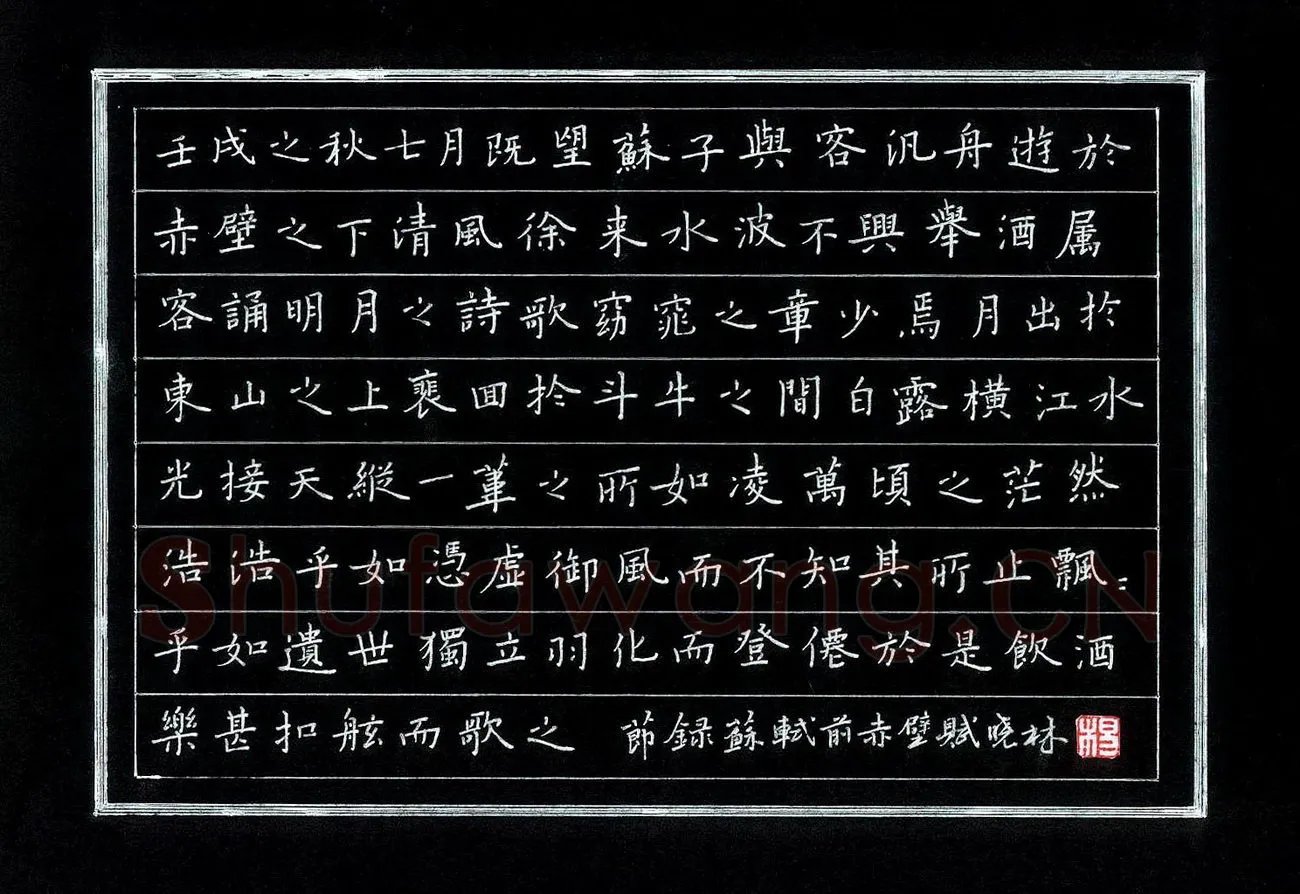 壬戌之秋七月既望蘇子與客汎舟遊於
赤壁之下清風徐来水波不興舉酒属
客誦明月之詩歌窈窕之章少焉月出於
東山之上裵囬於斗牛之間白露橫江水
光接天縱一葦之所如凌萬頃之茫然
浩浩乎如憑虛御風而不知其所止飄〻
乎如遺世獨立羽化而登僊於是飲酒
樂甚扣舷而歌之 節録蘇軾前赤壁賦曉林 楊
Shufawang.CN